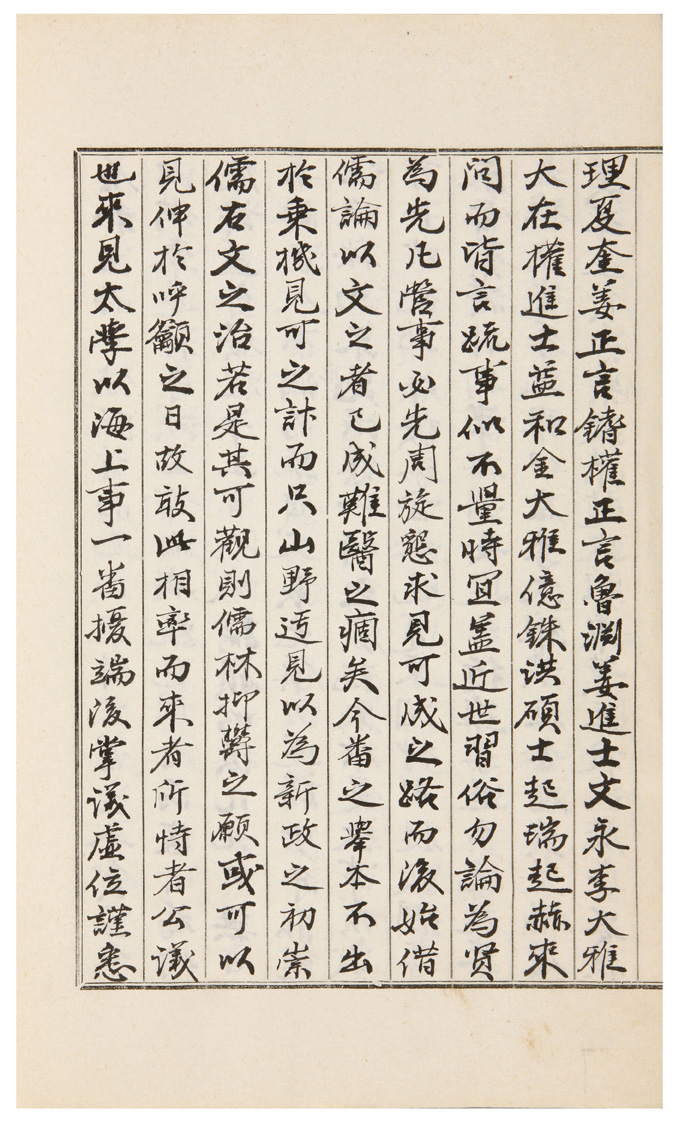 理夏奎姜正言鑄權正言魯淵姜進士文永李大雅
大在權進士益和金大雅億銖洪碩士起瑞起赫來
問而皆言疏事似不量時宜盖近世習俗勿論為贤
為先凡營事必先周旋懇求見可成之路而後始借
儒論以文之者已成難醫之痼矣今番之擧本不出
於乘機見可之計而只山野迃見以為新政之初崇
儒右文之治若是其可觀則儒林抑欝之願或可以
見伸於呼籲之日故敢此相率而來者所恃者公議
也來見太學以海上事一番擾端後掌議虛位謹悉